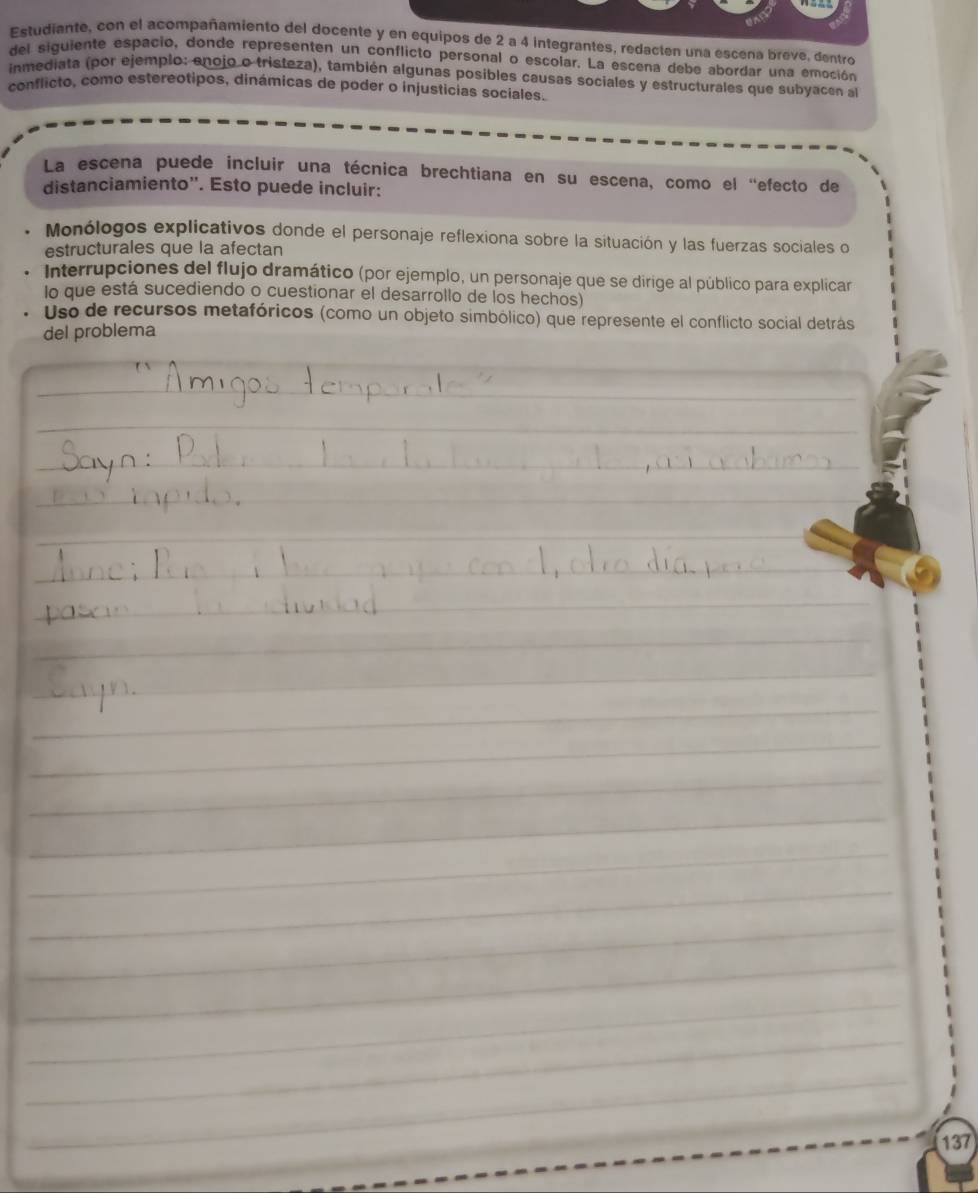 Estudiante, con el acompañamiento del docente y en equipos de 2 a 4 integrantes, redacten una escena breve, dentro
del siguiente espacio, donde representen un conflicto personal o escolar. La escena debe abordar una emoción
inmediata (por ejemplo: enojo o tristeza), también algunas posibles causas sociales y estructurales que subyacen al
conflicto, como estereotipos, dinámicas de poder o injusticias sociales.
La escena puede incluir una técnica brechtiana en su escena, como el “efecto de
distanciamiento”. Esto puede incluir:
• Monólogos explicativos donde el personaje reflexiona sobre la situación y las fuerzas sociales o
estructurales que la afectan
• Interrupciones del flujo dramático (por ejemplo, un personaje que se dirige al público para explicar
lo que está sucediendo o cuestionar el desarrollo de los hechos)
• Uso de recursos metafóricos (como un objeto simbólico) que represente el conflicto social detrás
del problema
"Amigos temporales"
Sayn: , asi acabamos
mas rapido.
Anne: con , otro dia
pasan
Sayn.
137